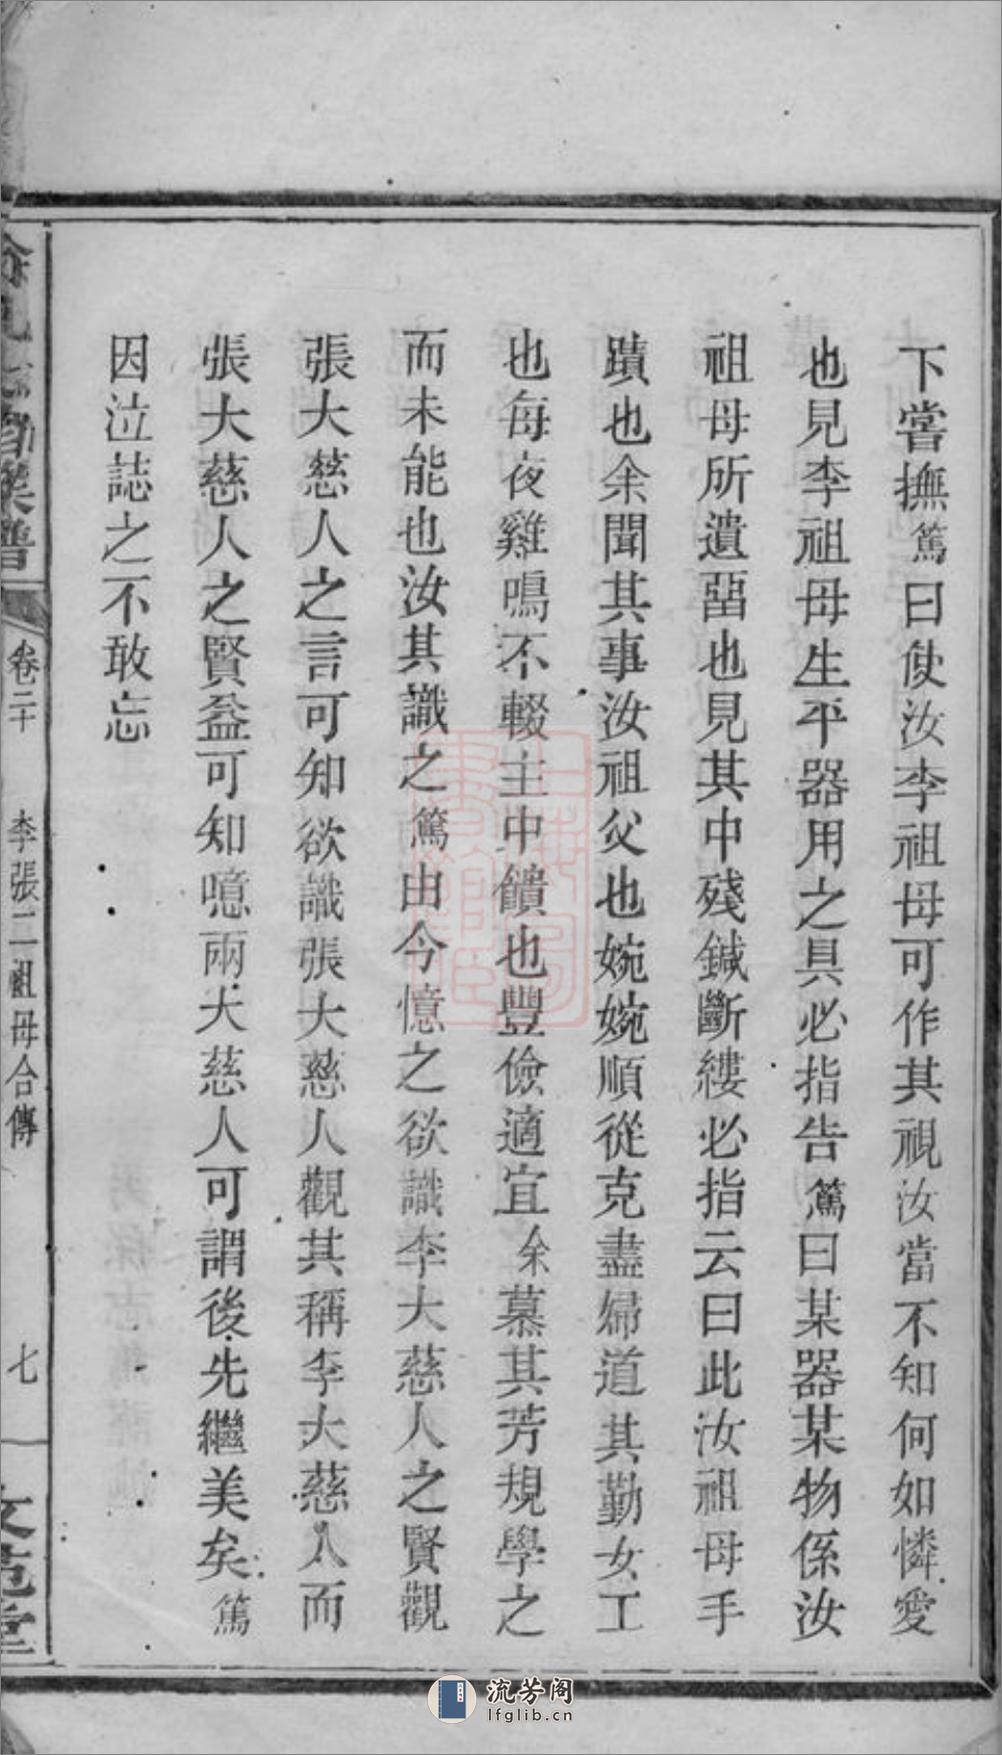 下嘗撫篤曰使汝李祖母可作其視汝當不知何如憐愛
也見李祖母生平器用之具必指告篤曰某器某物係汝
祖母所遺畱也見其中殘鍼斷縷必指云曰此汝祖母手
蹟也余聞其事汝祖父也婉婉順從克盡婦道其勤女工
也每夜雞鳴不輟主中饋也豐儉適宜余慕其芳規學之
而未能也汝其識之篤由今憶之欲識李大慈人之賢觀
張大慈人之言可知欲識張大慈人觀其稱李大慈人而
張大慈人之賢益可知噫兩大慈人可謂後先繼美矣篤
因泣誌之不敢忘
卷二十
李張二祖母合傳
七
文苑堂
流芳阁
lfglib.cn